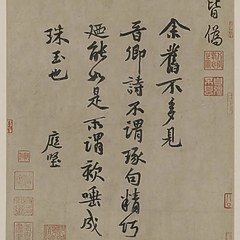 皆偽
余舊不多見
晉卿詩不謂琢句精巧
廼能如是所謂欬唾成
珠玉也 庭堅